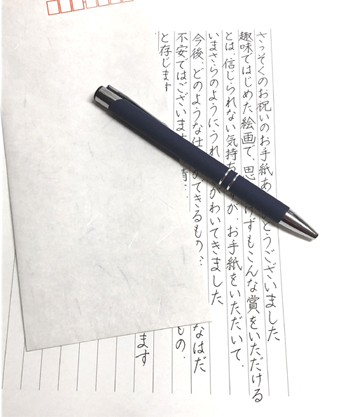 さっそくのお祝いのお手紙あ とうございました
趣味ではじめた絵画で、思 けずもこんな賞をいただける
とは、信じられない気持ち が、お手紙をいただいて、
いまさらのようにうれ がわいてきました
今後、どのような仕 できるもの… なはだ
不安ではございま もの、
と存じます ます